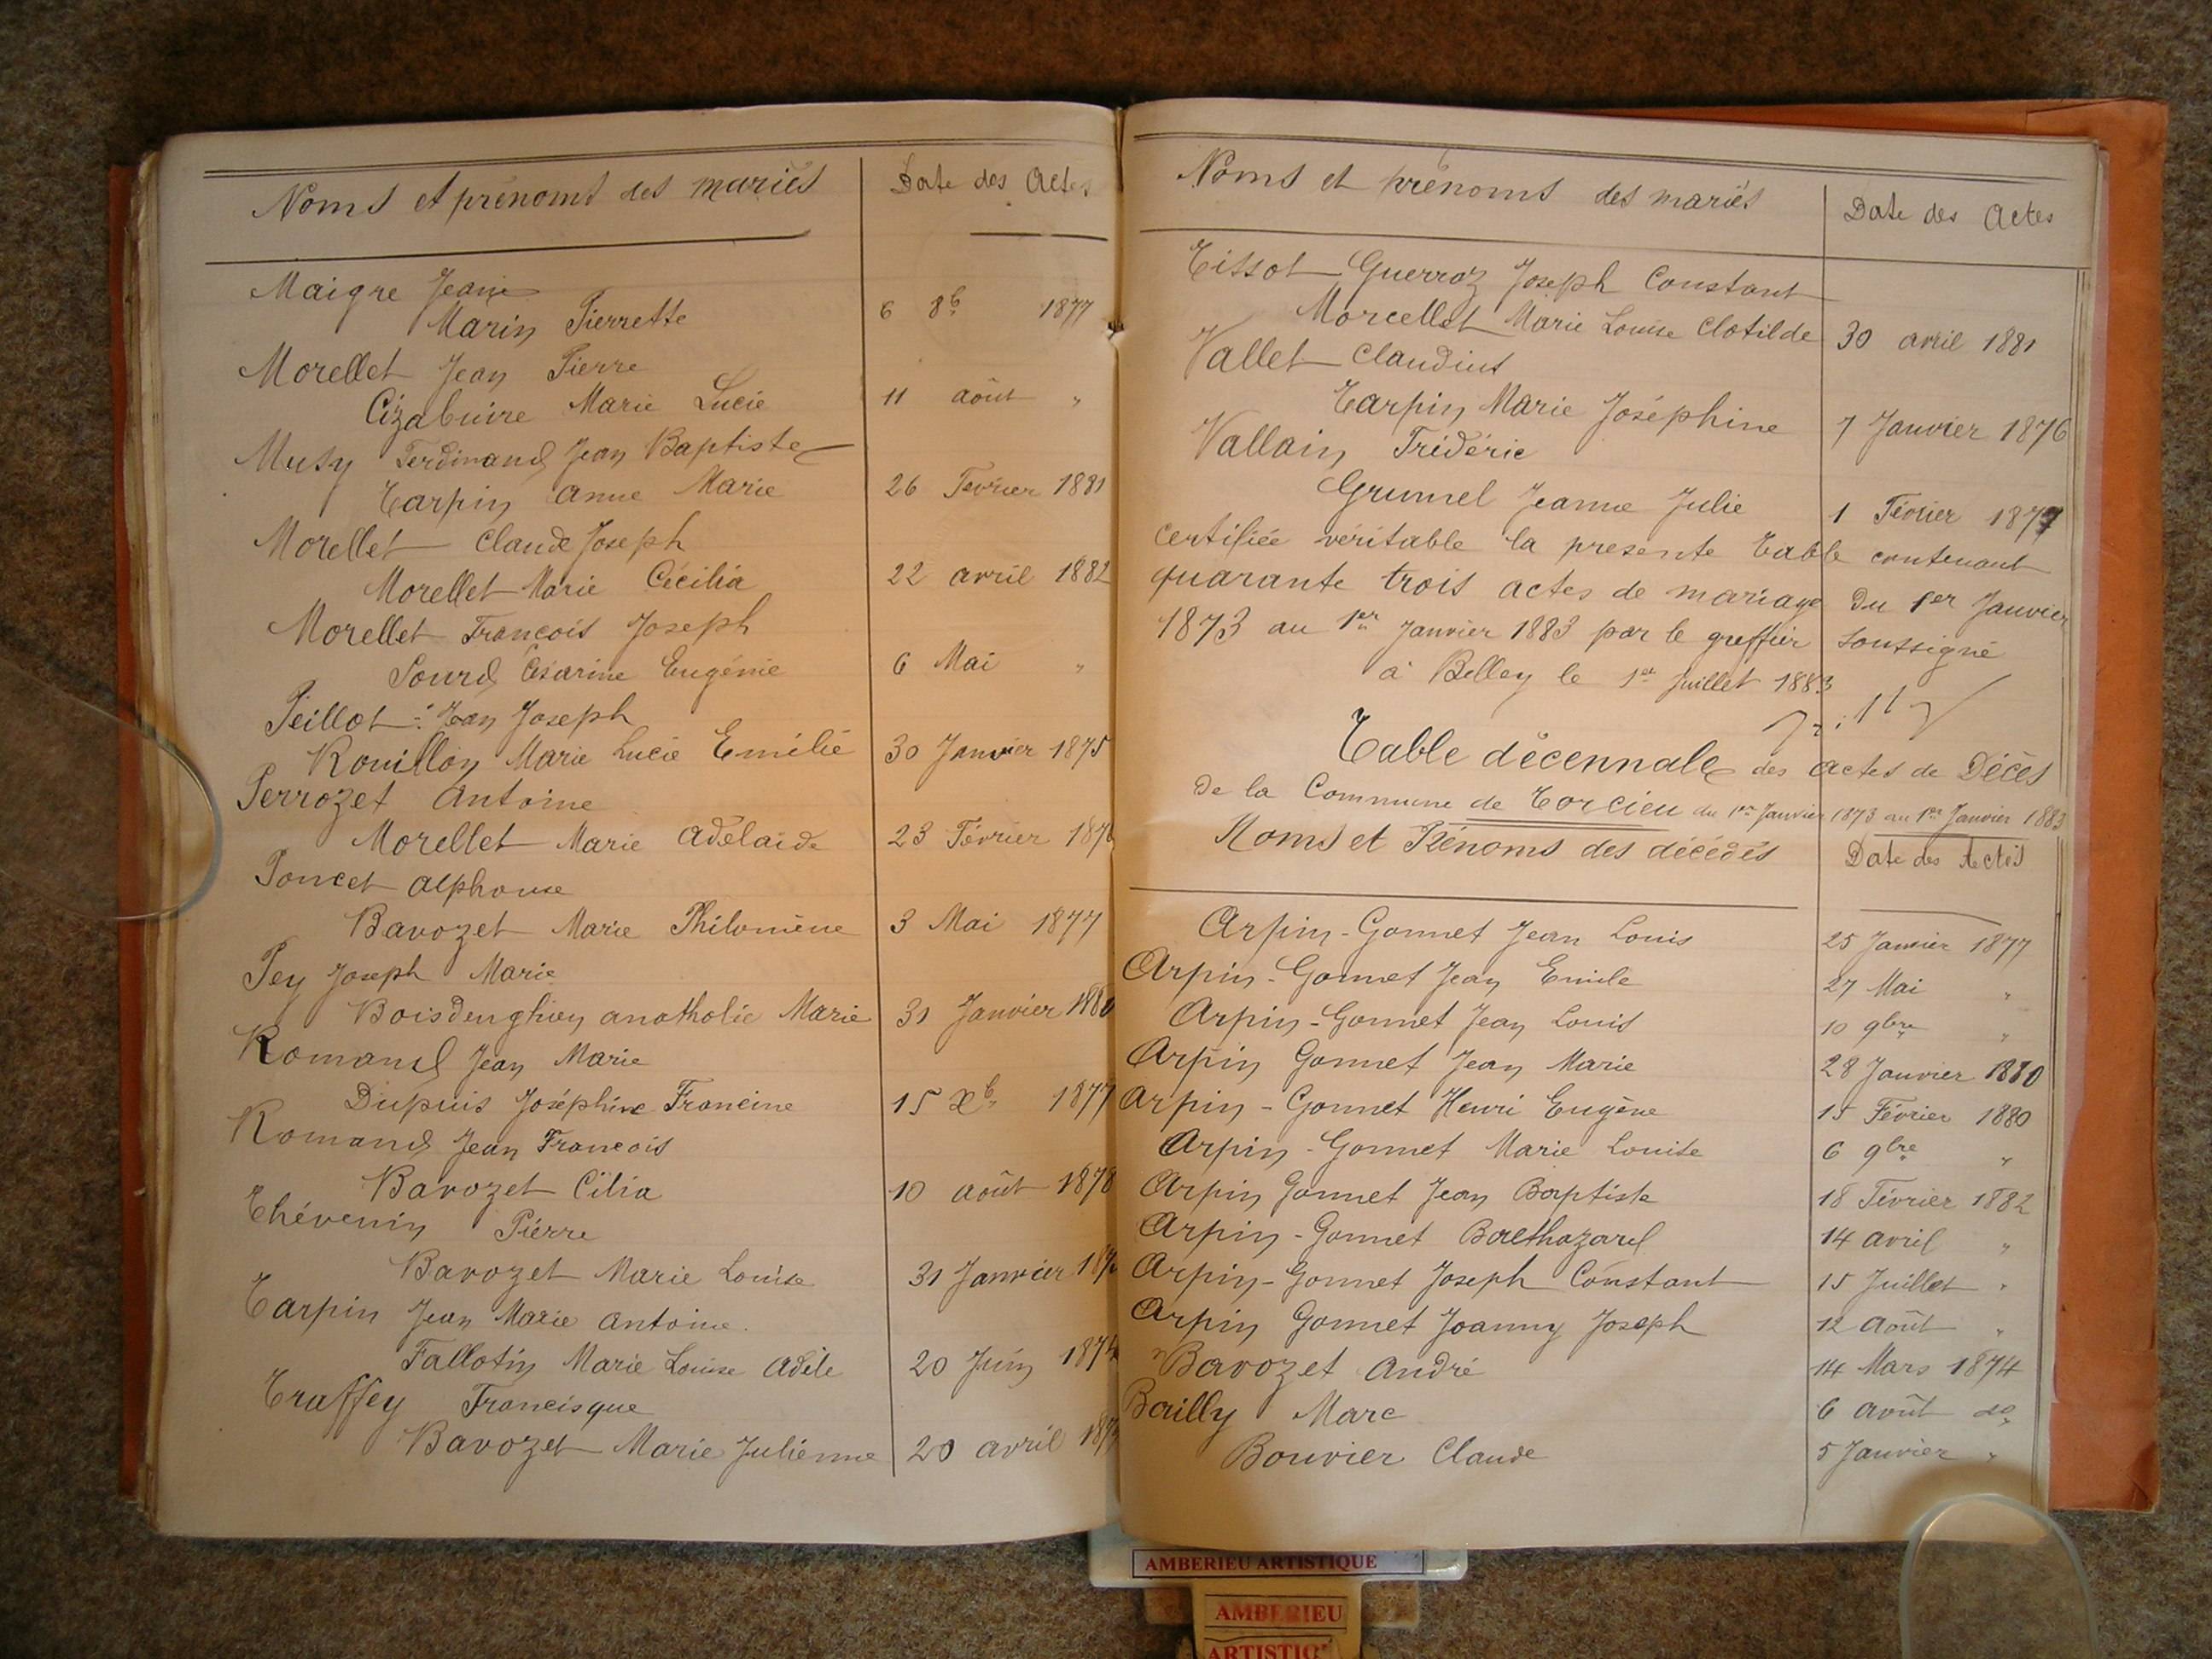 Noms et prénoms des mariés Date des Actes
Maigre Jean
Marin Pierrette 6 8b. 1877
Morellet Jean Pierre
Cizabuire Marie Lucie 11 août "
Musy Ferdinand Jean Baptiste
Tarpin Anne Marie 26 Fevrier 1881
Morellet Claude Joseph
Morellet Marie Cécilia 22 avril 1882
Morellet Francois Joseph
Sourd Césarine Eugénie 6 Mai "
Peillot Jean Joseph
Rouillon Marie Lucie Emélie 30 Janvier 1875
Perrozet Antoine
Morellet Marie Adélaide 23 Février
Poncet Alphonse
Bavozet Marie Philomène 3 Mai 1877
Pey Joseph Marie
Boisdenghien anatholie Marie 31 Janvier 1880
Romand Jean Marie
Dupuis Joséphine Francine 15 Xb. 1877
Romand Jean Francois
Bavozet Cilia 10 août 1878
Thévenin Pierre
Bavozet Marie Louise 31 Janvier
Tarpin Jean Marie Antoine.
Fallotin Marie Louise Adèle 20 Juin 1874
Truffey Francisque
Bavozet Marie Julienne 20 avril
Noms et prénoms des mariés Date des Actes
Tissot Guerraz Joseph Constant
Morcellet Marie Louise Clotilde 30 avril 1881
Vallet Claudius
Tarpin Marie Joséphine 7 Janvier 1876
Vallain Frédéric
Grumel Jeanne Julie 1 Février 1877
certifiée véritable la presente table contenant
quarante trois actes de mariage du 1er Janvier
1873 au 1er Janvier 1883 par le greffier soussigné
à Belley le 1er Juillet 1883
Table décennale des actes de Décès
de la Commune de Torcieu du 1er Janvier 1873 au 1er Janvier 1883
Noms et Prénoms des décédés Date des Actes
Arpin-Gonnet Jean Louis 25 Janvier 1877
Arpin-Gonnet Jean Emile 27 Mai "
Arpin-Gonnet Jean Louis 10 9bre "
Arpin Gonnet Jean Marie 28 Janvier 1880
Arpin-Gonnet Henri Eugène 15 Février 1880
Arpin-Gonnet Marie Louise 6 9bre "
Arpin Gonnet Jean Baptiste 18 Février 1882
Arpin-Gonnet Balthazard 14 avril "
Arpin-Gonnet Joseph Constant 15 Juillet "
Arpin Gonnet Joanny Joseph 12 Août "
Bavozet André 14 Mars 1874
Bailly Marc 6 août do
Bouvier Claude 5 Janvier "
AMBERIEU ARTISTIQUE
AMBERIEU
ARTISTIQ